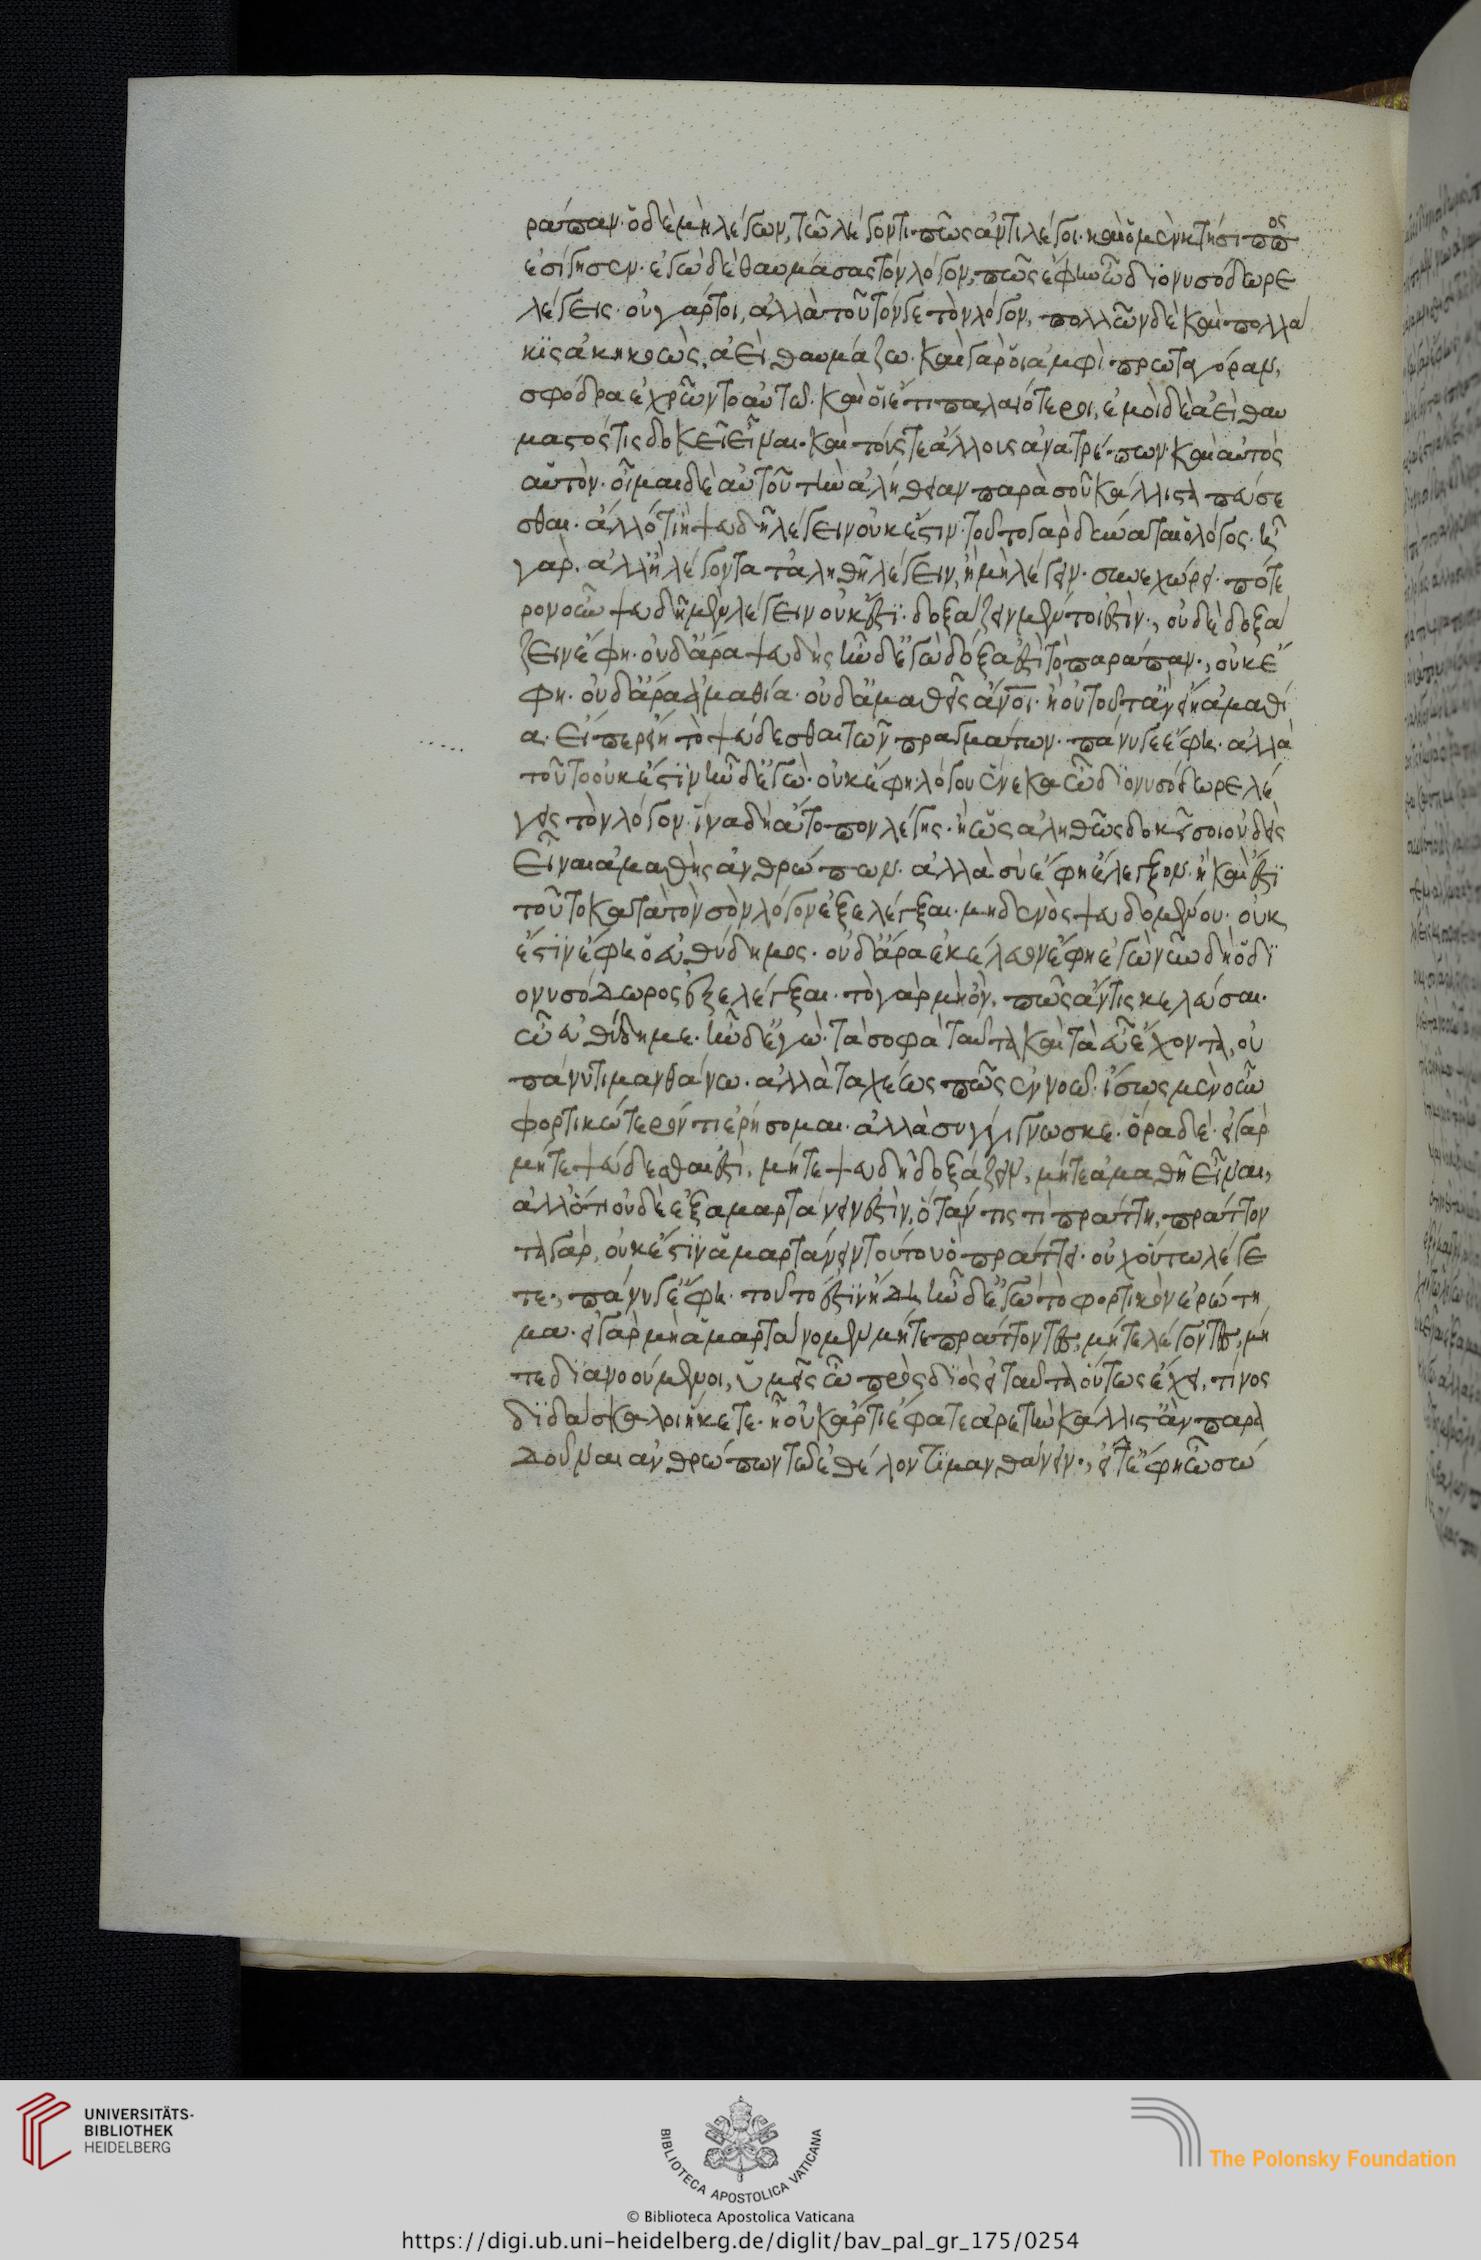 ράπαν· ὁ δὲ μὴ λέγων, τῶ λέγοντι πῶς ἀντιλέγοι· καὶ ὁ μὲν κτήσιππος
ἐσίγησεν· ἐγὼ δὲ θαυμάσας τὸν λόγον, πῶς ἔφην ὦ διονυσόδωρε
λέγεις· οὐ γάρ τοι, ἀλλὰ τοῦτόν γε τὸν λόγον, πολλῶν δὲ καὶ πολλά
κις ἀκηκοὼς, ἀεὶ θαυμάζω· καὶ γὰρ οἱ ἀμφὶ πρωταγόραν,
σφόδρα ἐχρῶντο αὐτῶ· καὶ οἱ ἔτι παλαιότεροι, ἐμοὶ δὲ ἀεὶ θαυ
μαστός τις δοκεῖ εἶναι· καὶ τούς τε ἄλλους ἀνατρέπων· καὶ αὐτὸς
αὑτὸν· οἶμαι δὲ αὐτοῦ τὴν ἀλήθειαν παρὰ σοῦ κάλλιστα πεύσε
σθαι· ἄλλό τι ἢ ψευδῆ λέγειν οὐκ ἔστιν· τοῦτο γὰρ δύναται ὁ λόγος· ἦ
γάρ· ἀλλ' ἢ λέγοντα τἀληθῆ λέγειν, ἢ μὴ λέγειν· συνεχώρει· πότε
ρον οὖν ψευδῆ μὲν λέγειν οὐκ ἔστι· δοξάζειν μέν τοι ἐστὶν·, οὐδὲ δοξά
ζειν ἔφη· οὐδ' ἄρα ψευδὴς ἦν δ' ἐγὼ δόξα ἐστὶ τὸ παράπαν·, οὐκ ἔ
φη· οὐδ' ἄρα ἀμαθία· οὐδ' ἀμαθεῖς ἄνοι· ἢ οὐ τοῦτ' ἂν εἴη ἀμαθί
α· εἴπερ εἴη τὸ ψεύδεσθαι τῶν πραγμάτων· πάνυ γε ἔφη· ἀλλὰ
τοῦτο οὐκ ἔστιν ἦν δ' ἐγώ· οὐκ ἔφη· λόγου ἕνεκα ὦ διονυσόδωρε λέ
γεις τὸν λόγον· ἵνα δὴ ἄτοπον λέγης· ἢ ὡς ἀληθῶς δοκεῖ σοι οὐδεὶς
εἶναι ἀμαθὴς ἀνθρώπων· ἀλλὰ σὺ ἔφη ἔλεγξον· ἢ καὶ ἔστι
τοῦτο κατὰ τὸν σὸν λόγον ἐξελέγξαι· μηδενὸς ψευδομένου· οὐκ
ἔστιν ἔφη ὁ εὐθύδημος· οὐδ' ἄρα ἐκέλευον ἔφη ἐγὼ νῦν δὴ ὁ δι
ονυσόδωρος ἐξελέγξαι· τὸ γὰρ μὴ ὂν, πῶς ἄν τις κελεύσαι·
ὦ εὐθύδημε· ἦν δ' ἐγὼ· τὰ σοφὰ ταῦτα καὶ τὰ εὖ ἔχοντα, οὐ
πάνυ τι μανθάνω· ἀλλὰ ταχέως πῶς ἐννοῶ· ἴσως μὲν οὖν
φορτικώτερόν τι ἐρήσομαι· ἀλλὰ συγγίγνωσκε· ὅρα δέ· εἰ γὰρ
μήτε ψεύδεσθαι ἐστὶ, μήτε ψευδῆ δοξάζειν, μήτε ἀμαθῆ εἶναι,
ἄλλό τι οὐδὲ ἐξαμαρτάνειν ἐστὶν, ὅταν τις τὶ πράττη, πράττον
τα γὰρ, οὐκ ἔστιν ἁμαρτάνειν τούτου ὃ πράττει· οὐχ οὕτω λέγε
τε·, πάνυ γ' ἔφη· τοῦτό ἐστιν ἤδη ἦν δ' ἐγὼ τὸ φορτικὸν ἐρώτη
μα· εἰ γὰρ μὴ ἁμαρτάνομεν μήτε πράττοντες, μήτε λέγοντες, μή
τε διανοούμενοι, ὑμεῖς ὦ πρὸς διὸς εἰ ταῦτα οὕτως ἔχει, τίνος
διδάσκαλοι ἥκετε· ἢ οὐκ ἄρτι ἔφατε ἀρετὴν κάλλιστ' ἂν παρα
δοῦναι ἀνθρώπων τῶ ἐθέλοντι μανθάνειν·, εἶτ' ἔφη ὦ σώ
UNIVERSITÄTS-
BIBLIOTHEK
HEIDELBERG
BIBLIOTECA APOSTOLICA VATICANA
The Polonsky Foundation
© Biblioteca Apostolica Vaticana
https://digi.ub.uni-heidelberg.de/diglit/bav_pal_gr_175/0254